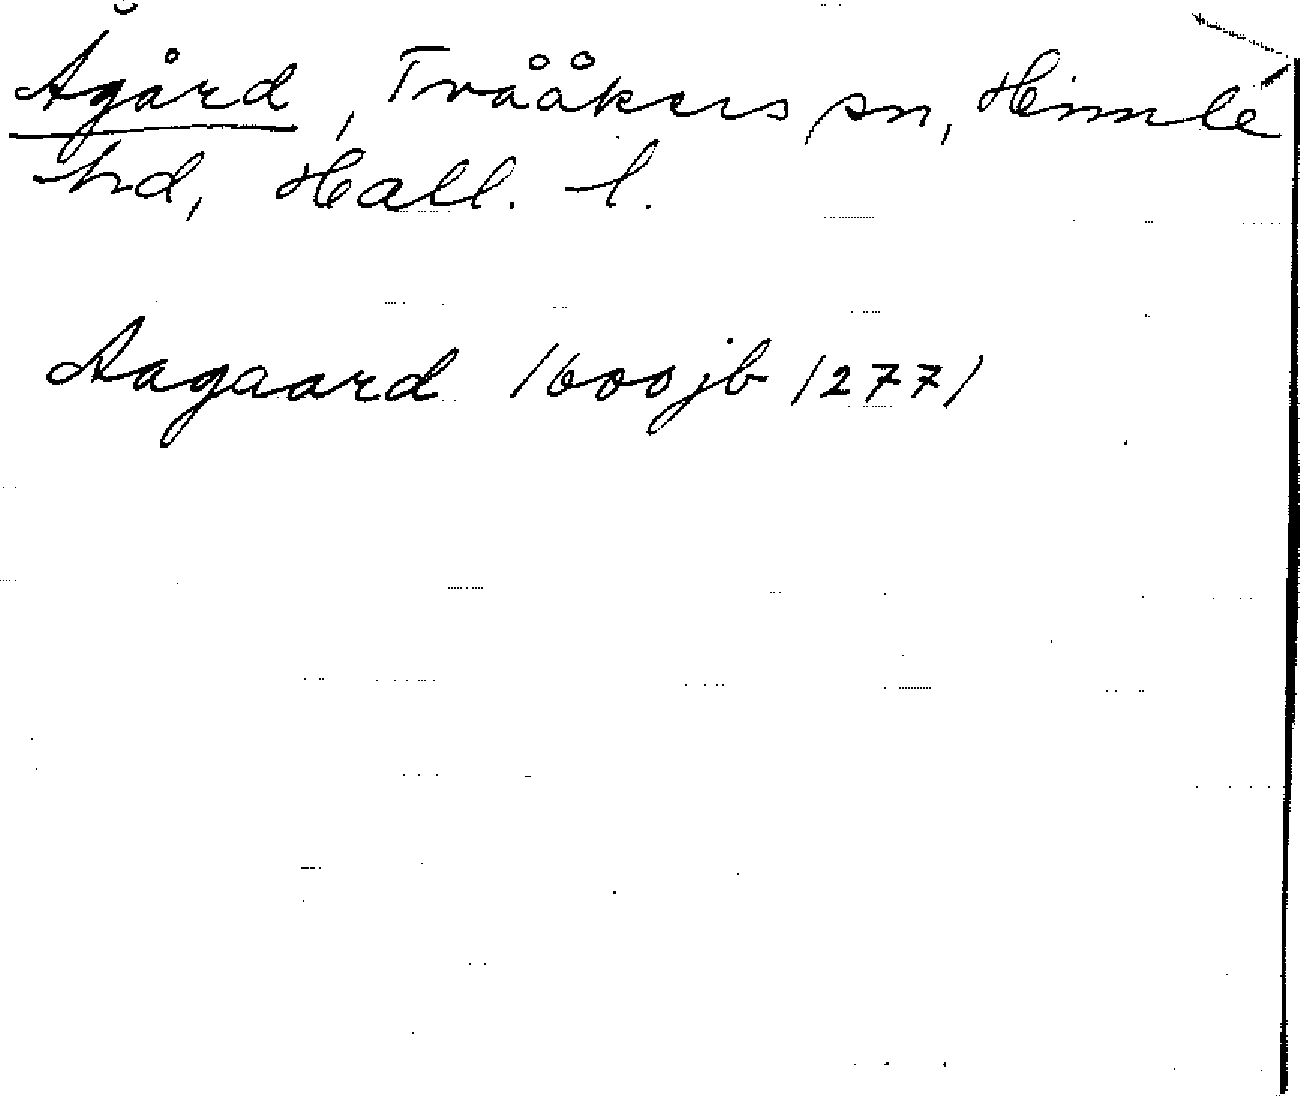 Ågård, Tvååkers sn, Himle
hd, Hall. l.
Aagaard 1600 jb /277/